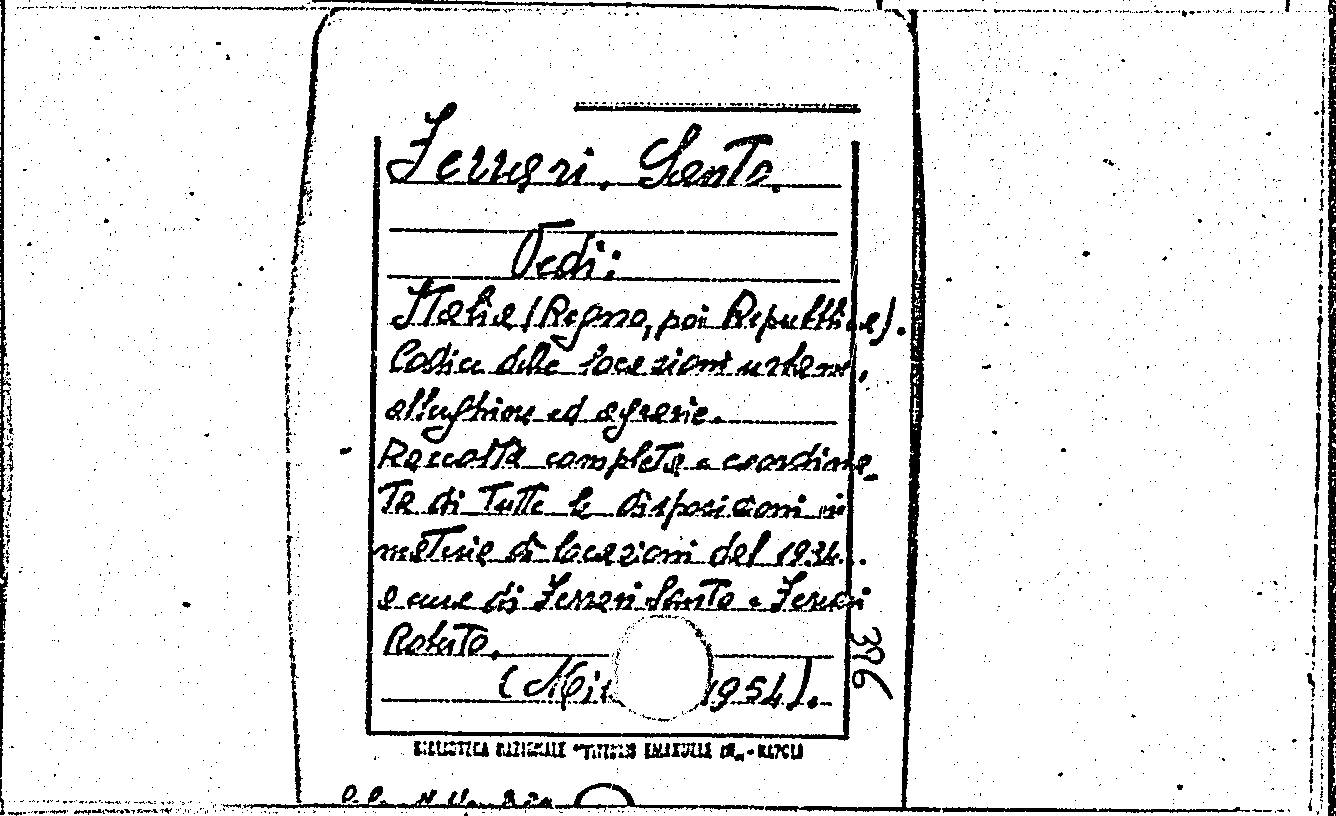 Ferrari, Santo.
Vedi:
Italia (Regno, poi Repubblica).
Codice delle locazioni urbane,
alberghiere ed agrarie.
Raccolta completa e coordina-
ta di tutte le disposizioni in
materia di locazioni dal 1934..
a cura di Ferrari Santo e Ferrari
Roberto.
( 1954).
396
BIBLIOTECA NAZIONALE "VITTORIO EMANUELE III„ - NAPOLI